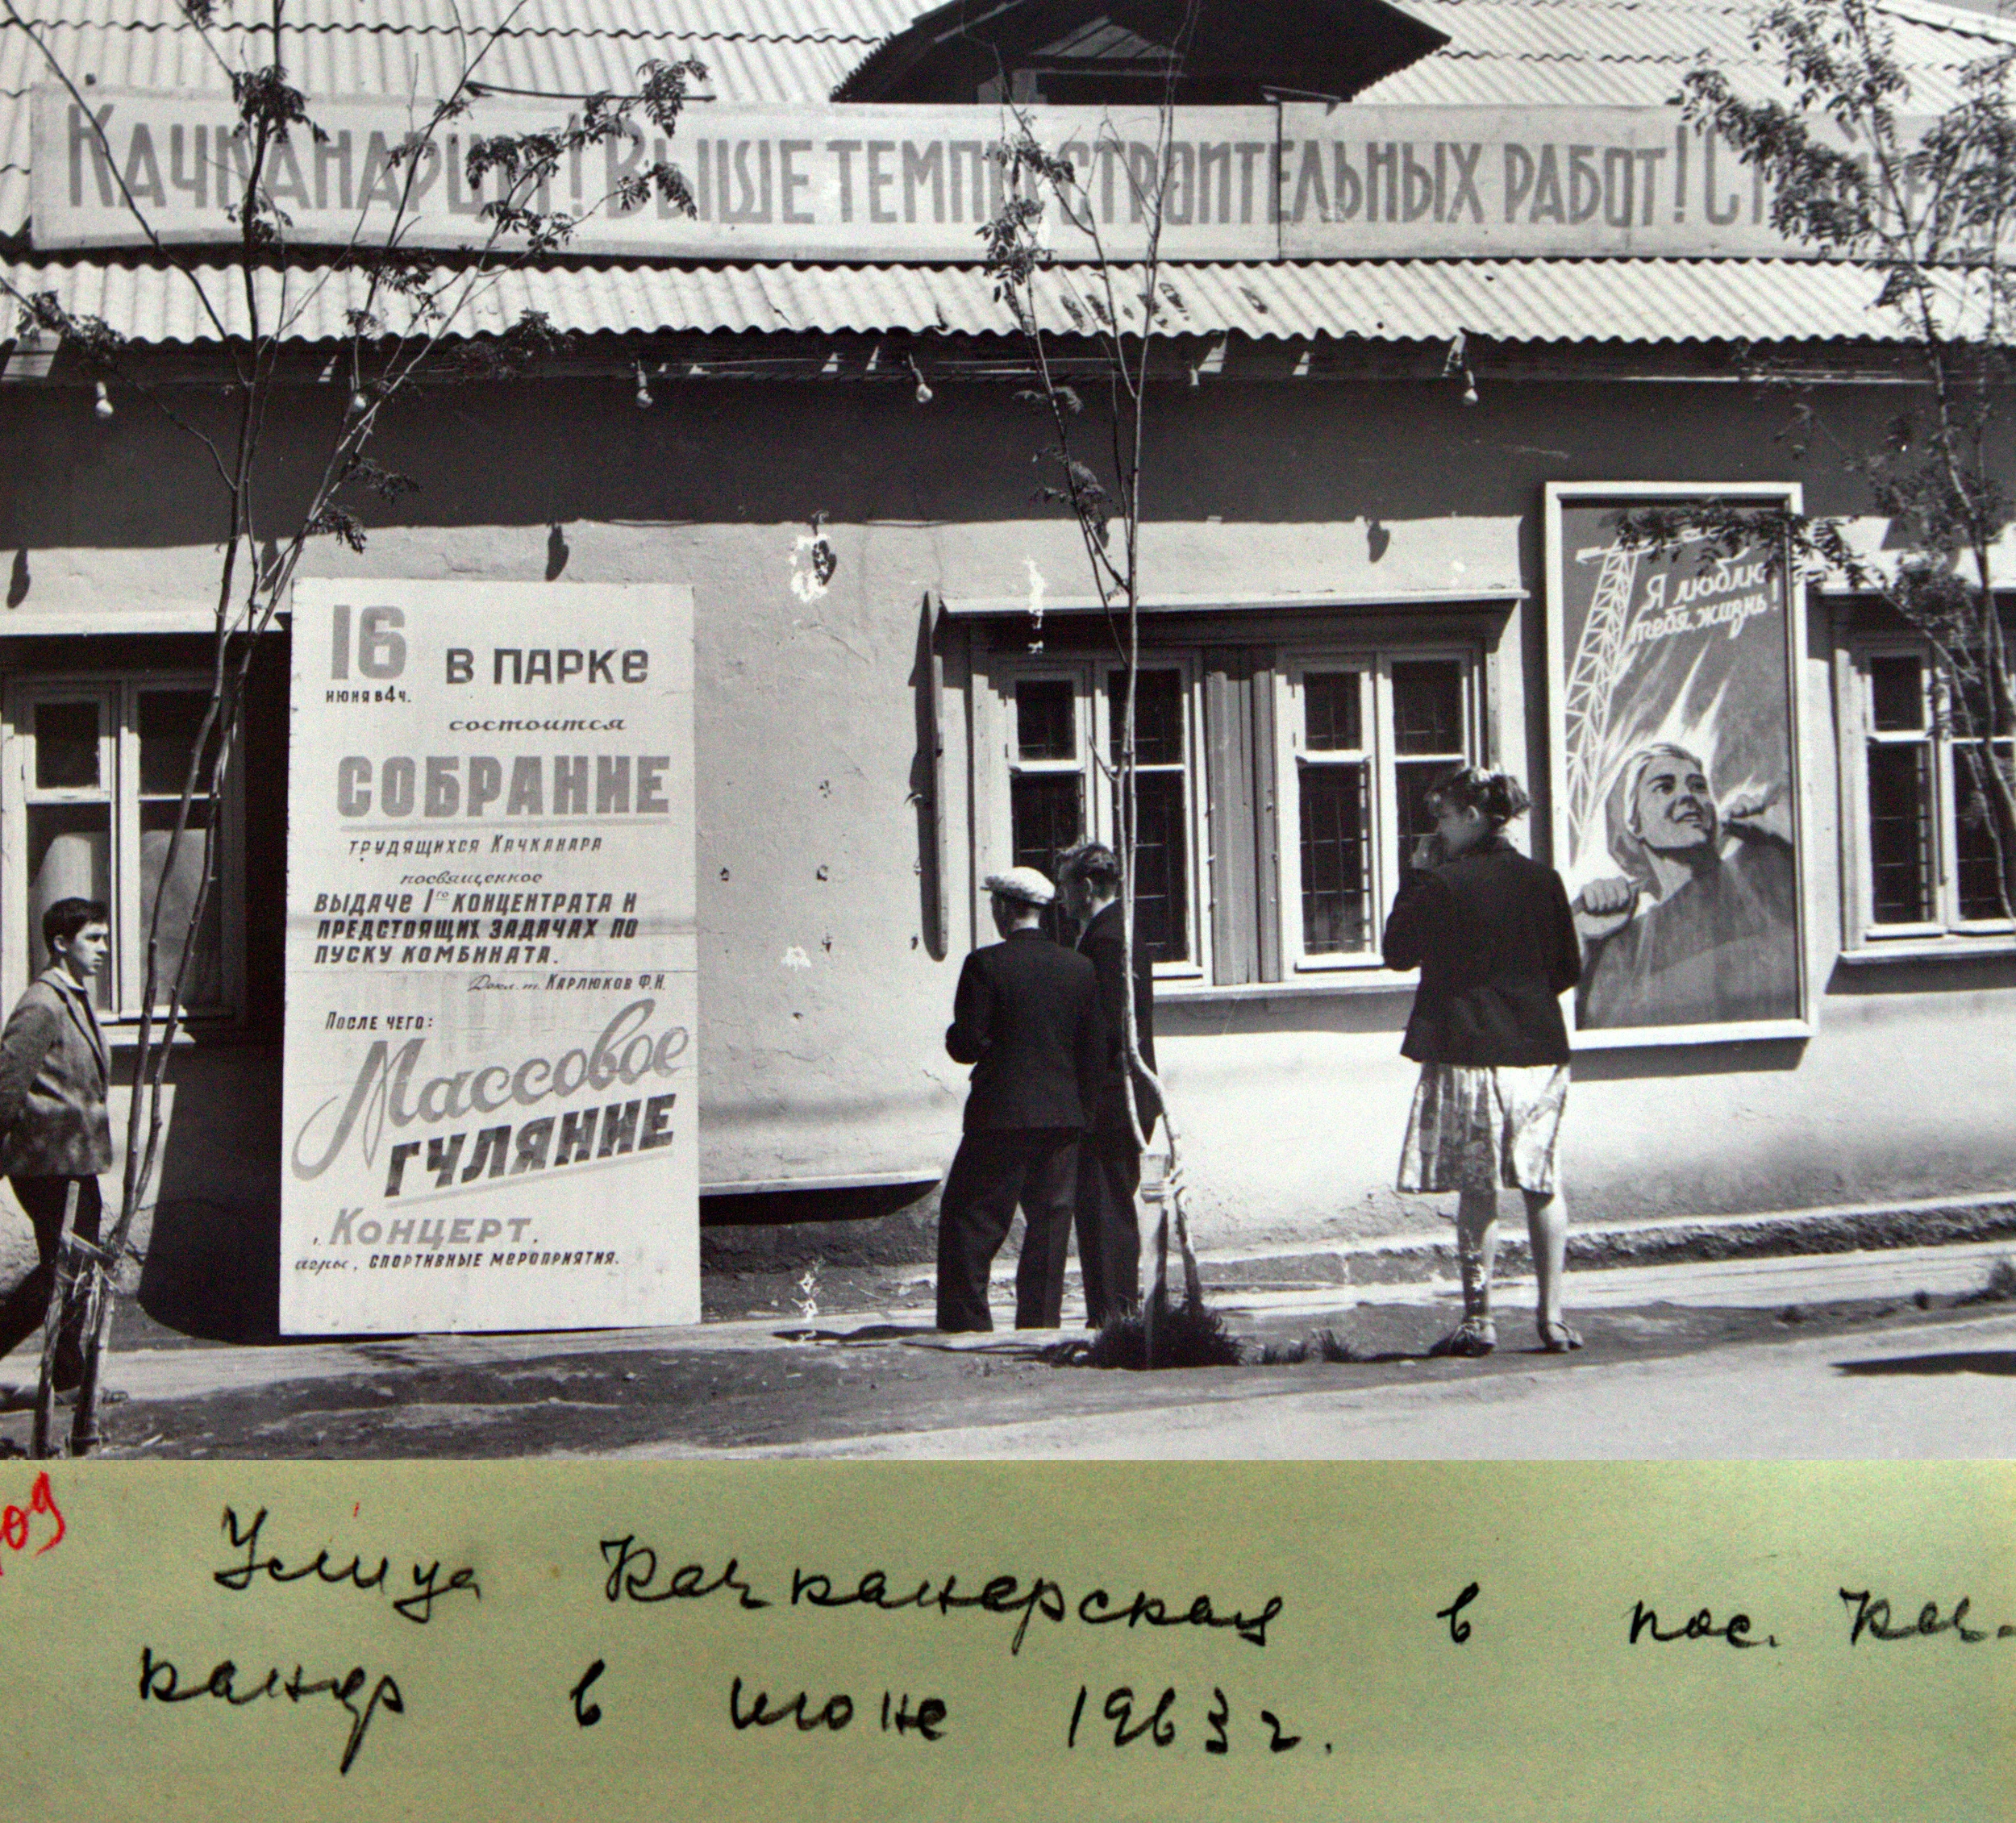 Качканарцы! Выше темпы строительных работ!
16
июня в 4 ч.
в парке
состоится
СОБРАНИЕ
трудящихся Качканара
посвященное
выдаче 1го концентрата и
предстоящих задачах по
пуску комбината.
Докл. т. Карлюков Ф.И.
После чего:
Массовое
ГУЛЯНИЕ
Концерт.
игры, спортивные мероприятия.
Я люблю
тебя, жизнь!
09
Улица Качканарская в пос. Кач-
канар в июне 1963 г.